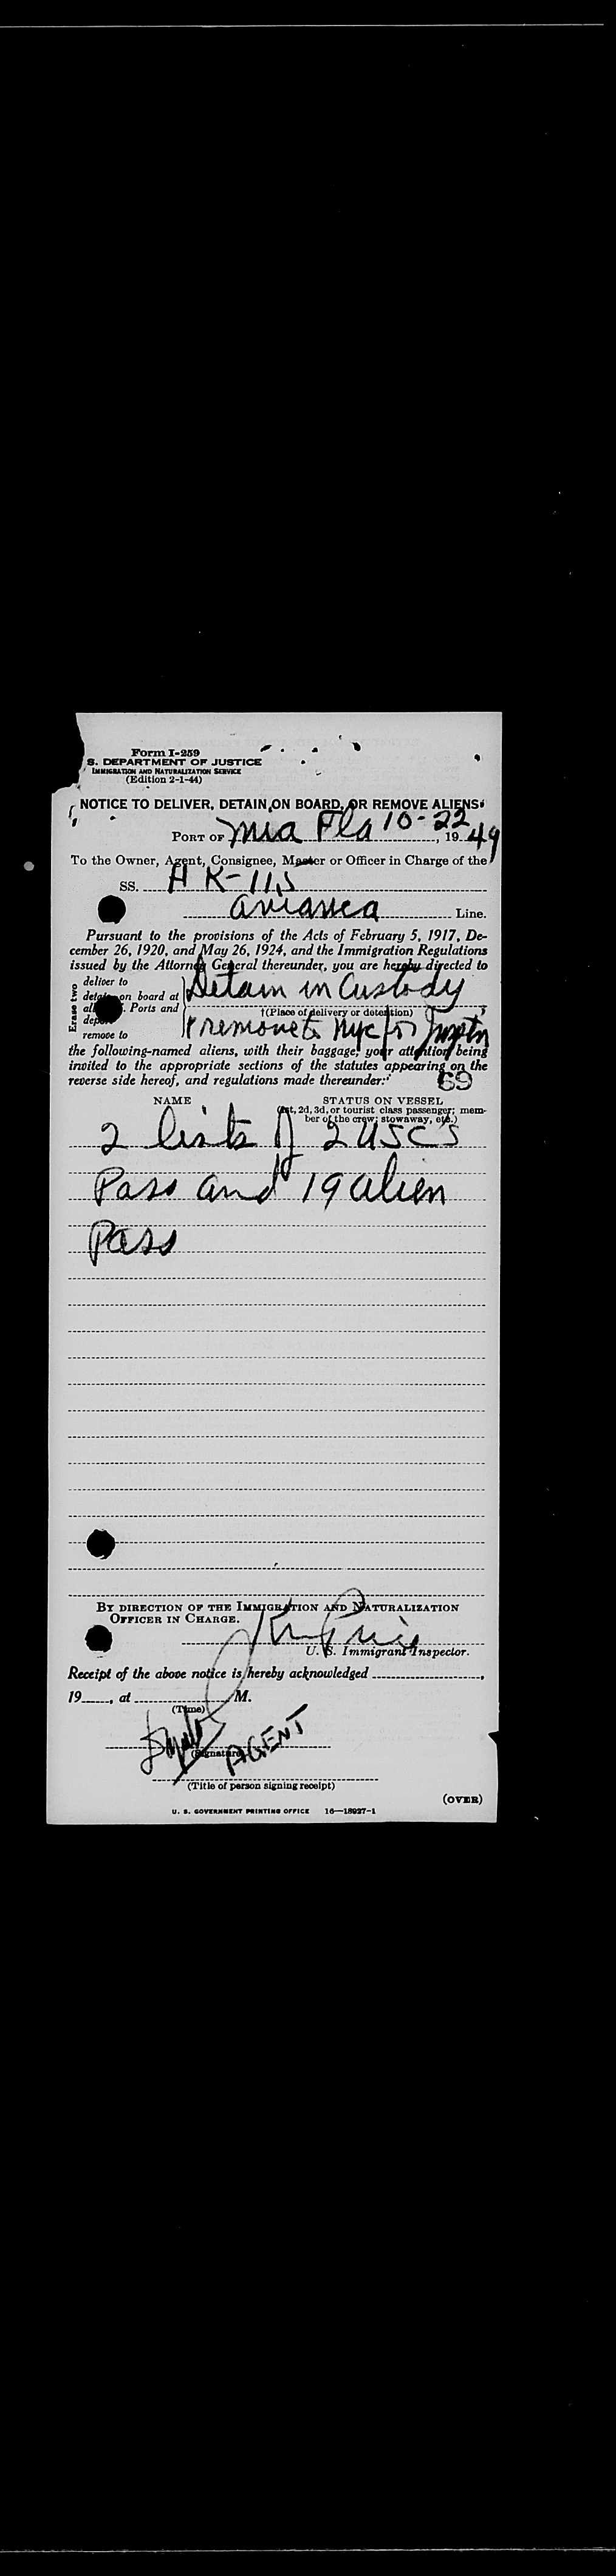 Form I-259
S. DEPARTMENT OF JUSTICE
IMMIGRATION AND NATURALIZATION SERVICE
(Edition 2-1-44)
NOTICE TO DELIVER, DETAIN ON BOARD, OR REMOVE ALIENS
PORT OF Mia Fla 10-22, 1949
To the Owner, Agent, Consignee, Master or Officer in Charge of the
SS. HK-115
Avianca Line.
Pursuant to the provisions of the Acts of February 5, 1917, De-
cember 26, 1920, and May 26, 1924, and the Immigration Regulations
issued by the Attorney General thereunder, you are hereby directed to
Erase two
deliver to
detain on board at
Ports and
remove to
Detain in Custody
†(Place of delivery or detention)
remove to NYC for
the following-named aliens, with their baggage, your attention being
invited to the appropriate sections of the statutes appearing on the
reverse side hereof, and regulations made thereunder:
69
NAME STATUS ON VESSEL
(1st, 2d, 3d, or tourist class passenger; mem-
ber of the crew; stowaway, etc.)
2 lists of 2 USC's
Pass and 19 alien
Pass
BY DIRECTION OF THE IMMIGRATION AND NATURALIZATION
OFFICER IN CHARGE.
U. S. Immigrant Inspector.
Receipt of the above notice is hereby acknowledged
19, at M.
(Time)
(Signature)
AGENT
(Title of person signing receipt)
(OVER)
U. S. GOVERNMENT PRINTING OFFICE 16—18927-1